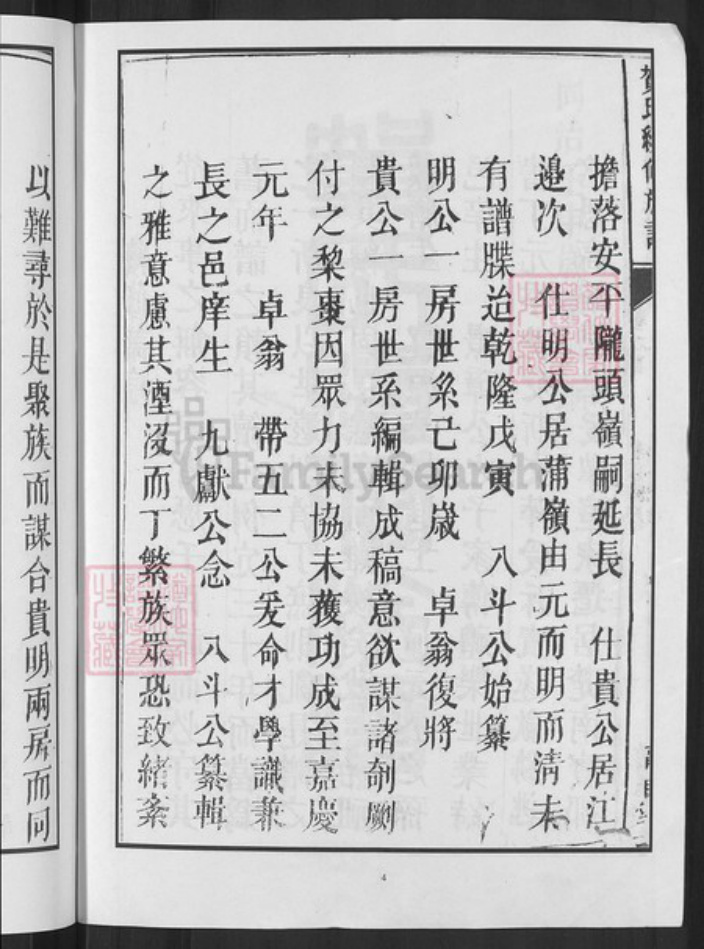 賀氏續修族譜
擔落安平隴頭嶺嗣延長　仕貴公居江
邊次　仕明公居蒲嶺由元而明而清未
有譜牒迨乾隆戊寅　八斗公始纂
明公一房世系己卯歲　卓翁復將
貴公一房世系編輯成稿意欲謀諸剞劂
付之黎棗因眾力未協未獲功成至嘉慶
元年　卓翁　帶五二公爰命才學識兼
長之邑庠生　九獻公念　八斗公纂輯
之雅意慮其湮沒而丁繁族眾恐致緒紊
以難尋於是聚族而謀合貴明兩房而同
FamilySearch
4